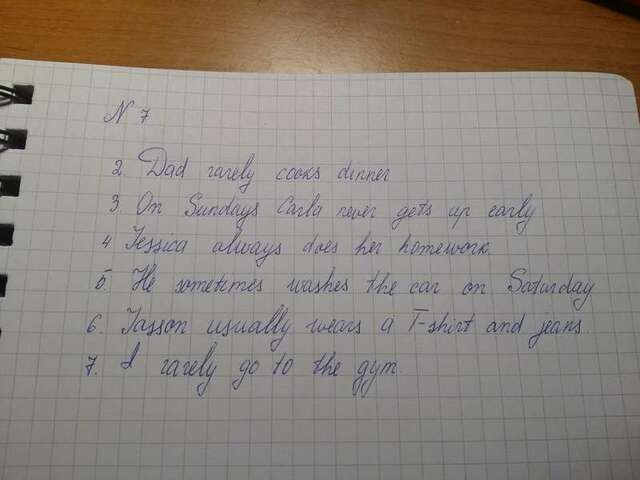 N 7
2. Dad rarely cooks dinner
3. On Sundays Carla never gets up early
4 Jessica always does her homework.
5. He sometimes washes the car on Saturday
6. Jasson usually wears a T-shirt and jeans.
7. I rarely go to the gym.